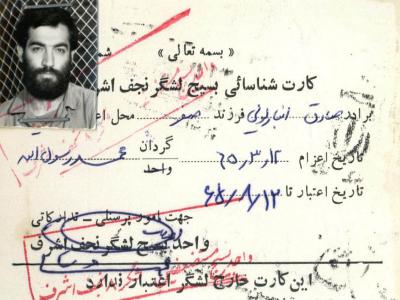 « بسمه تعالی »
کارت شناسائی بسیج لشگر نجف اشر
برادر صادق انبارلوئی فرزند صفر محل اع
تاریخ اعزام ۶۵/۳/۱۲ گردان محمد رسول الله
واحد
تاریخ اعتبار تا ۶۵/۸/۱۲
جهت امور پرسنلی - تدارکاتی
واحد بسیج لشگر نجف اشرف
این کارت خارج لشگر اعتبار ندارد